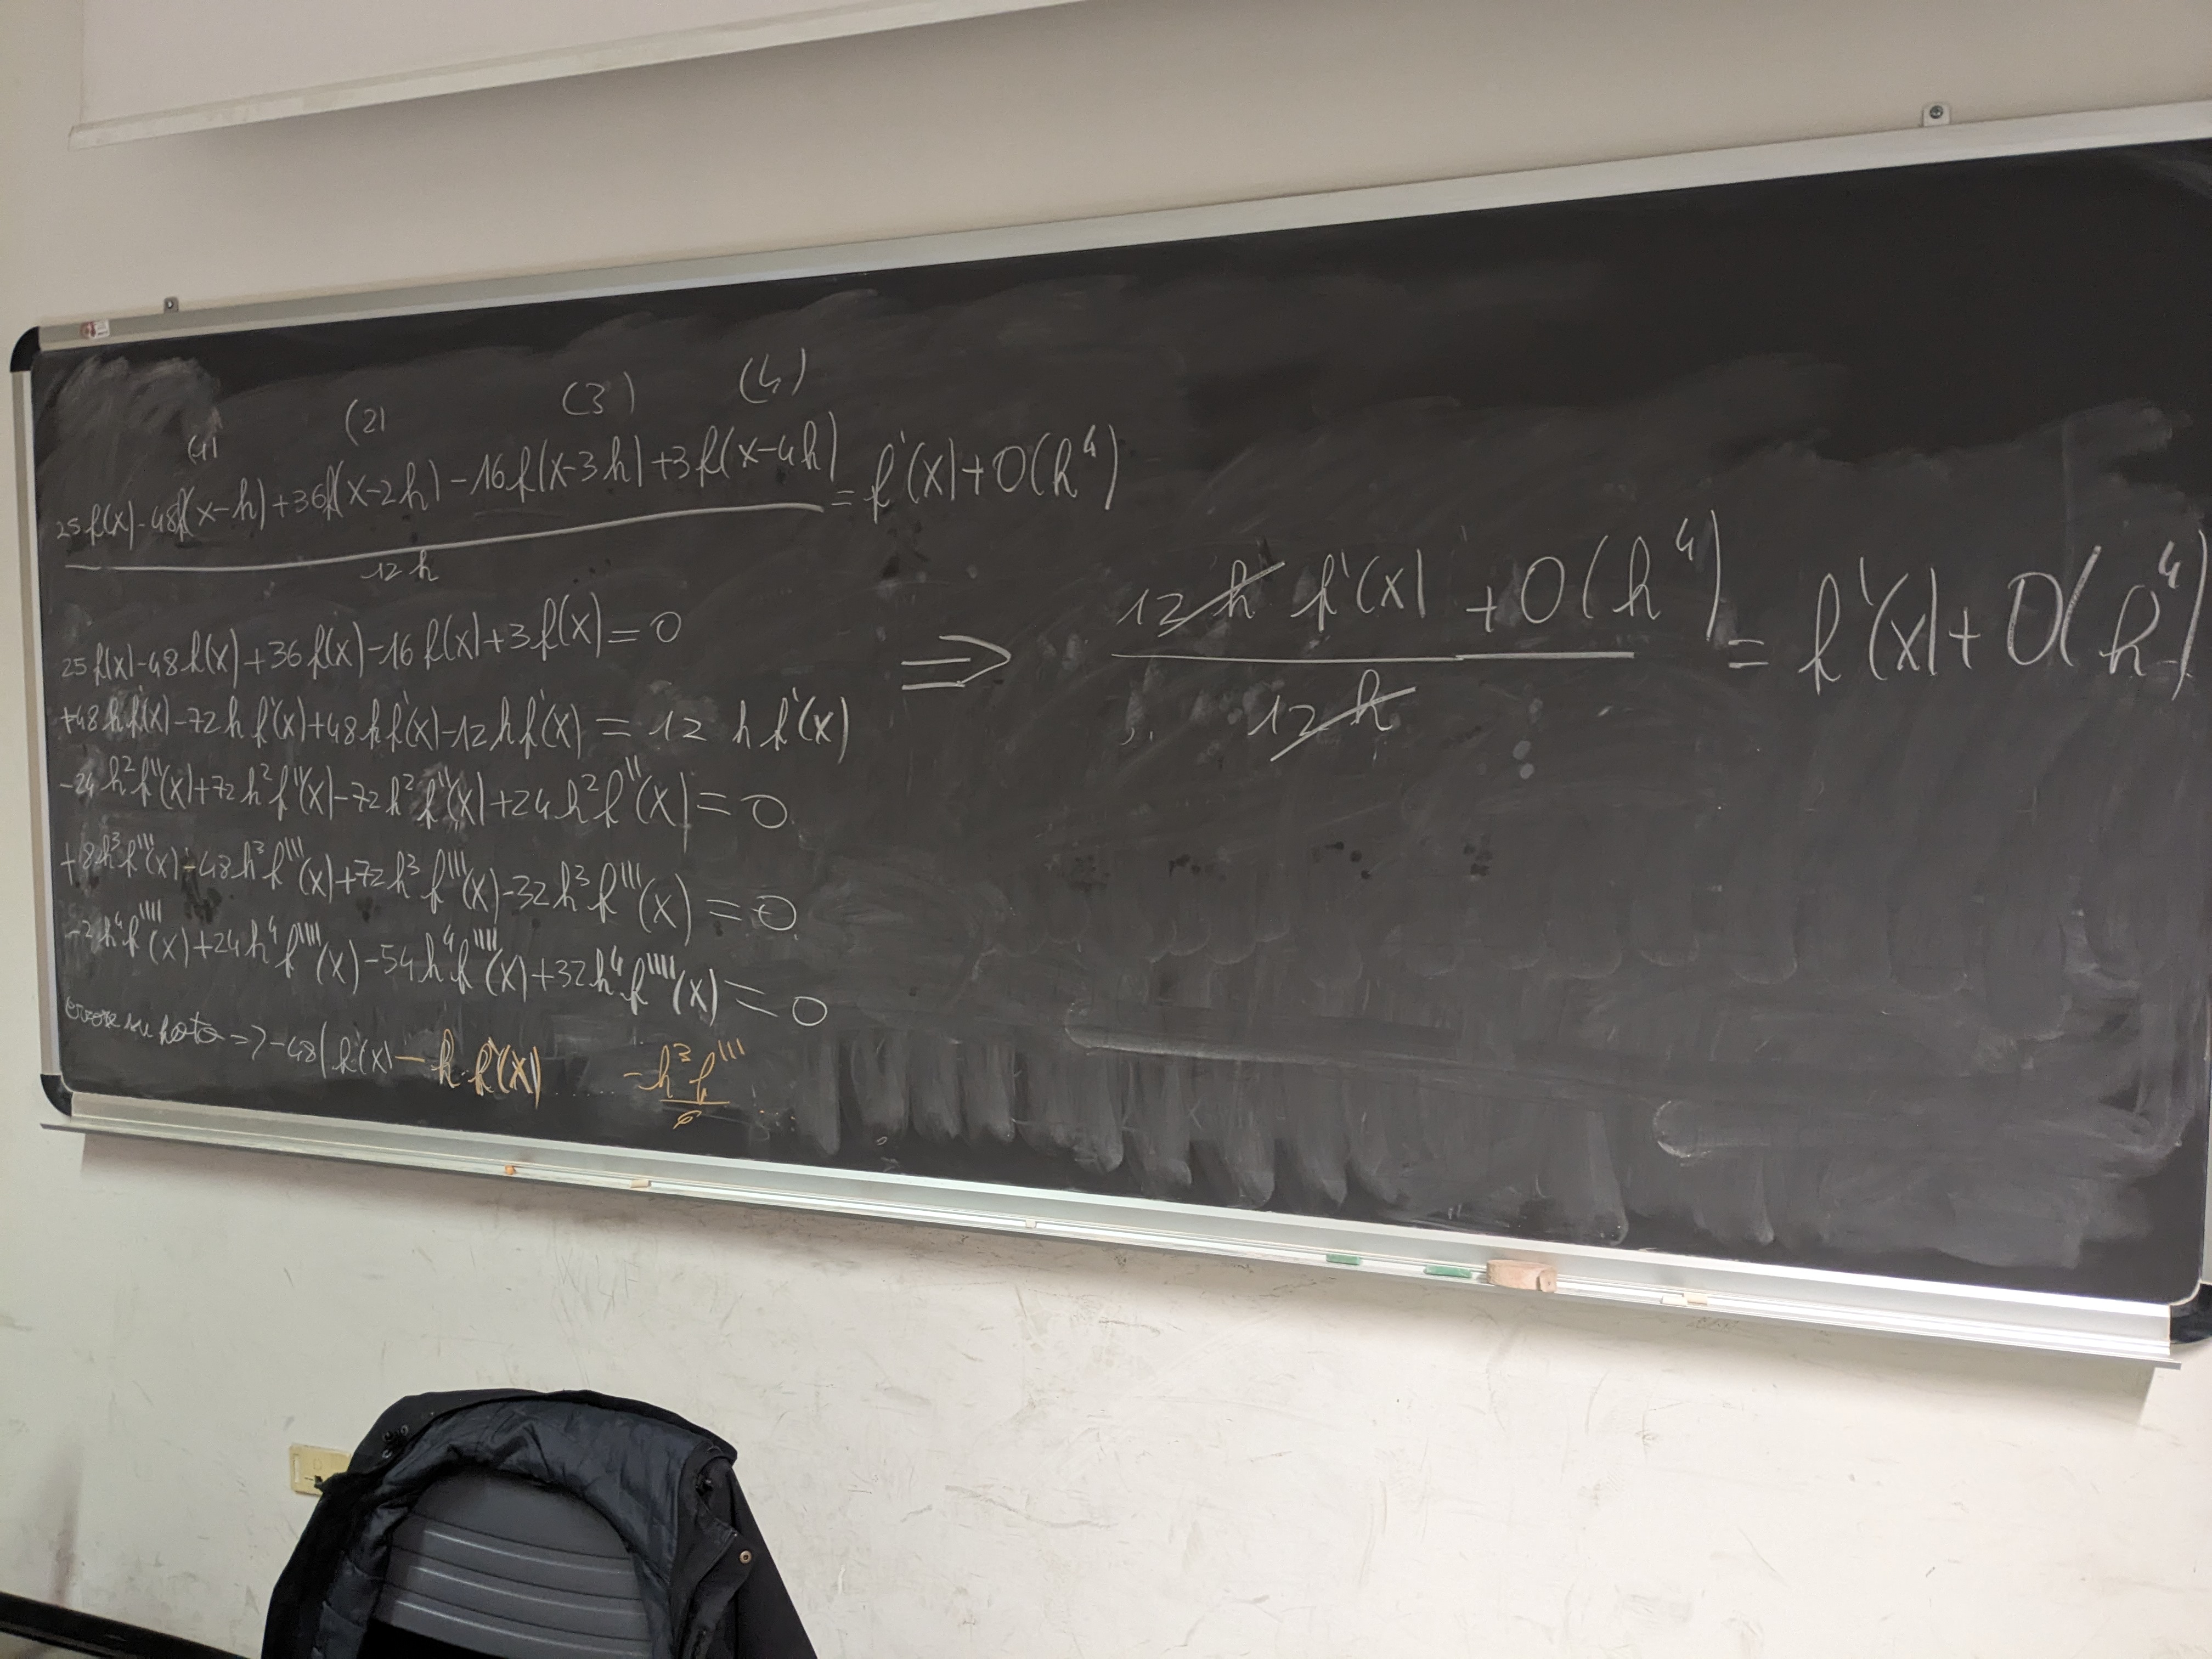 (1) (2) (3) (4)
25f(x)-48f(x-h)+36f(x-2h)-16f(x-3h)+3f(x-4h) = f'(x)+O(h⁴)
12h
25f(x)-48f(x)+36f(x)-16f(x)+3f(x)=0
+48hf'(x)-72hf'(x)+48hf'(x)-12hf'(x) = 12 hf'(x)
-24h²f''(x)+72h²f''(x)-72h²f''(x)+24h²f''(x)=0
+8h³f'''(x)-48h³f'''(x)+72h³f'''(x)-32h³f'''(x)=0
-2h⁴f''''(x)+24h⁴f''''(x)-54h⁴f''''(x)+32h⁴f''''(x)=0
errore su foto => -48(f(x) - h f'(x) ..... -h³f'''
6
=> 12h f'(x) + O(h⁴) = f'(x)+O(h⁴)
12h